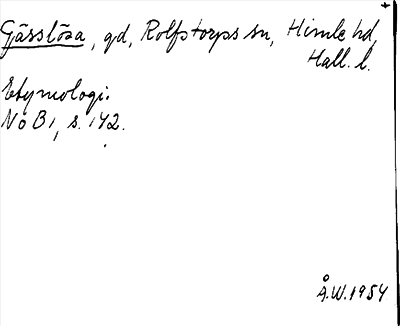 Gässlösa, gd, Rolfstorps sn, Himle hd,
Hall. l.
Etymologi.
NoB 1, s. 142.
Å.W. 1954